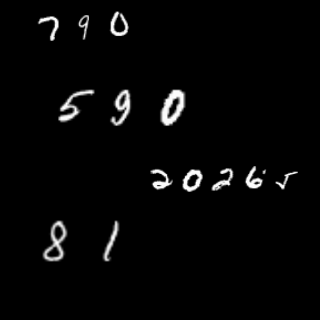 790
590
20265
81